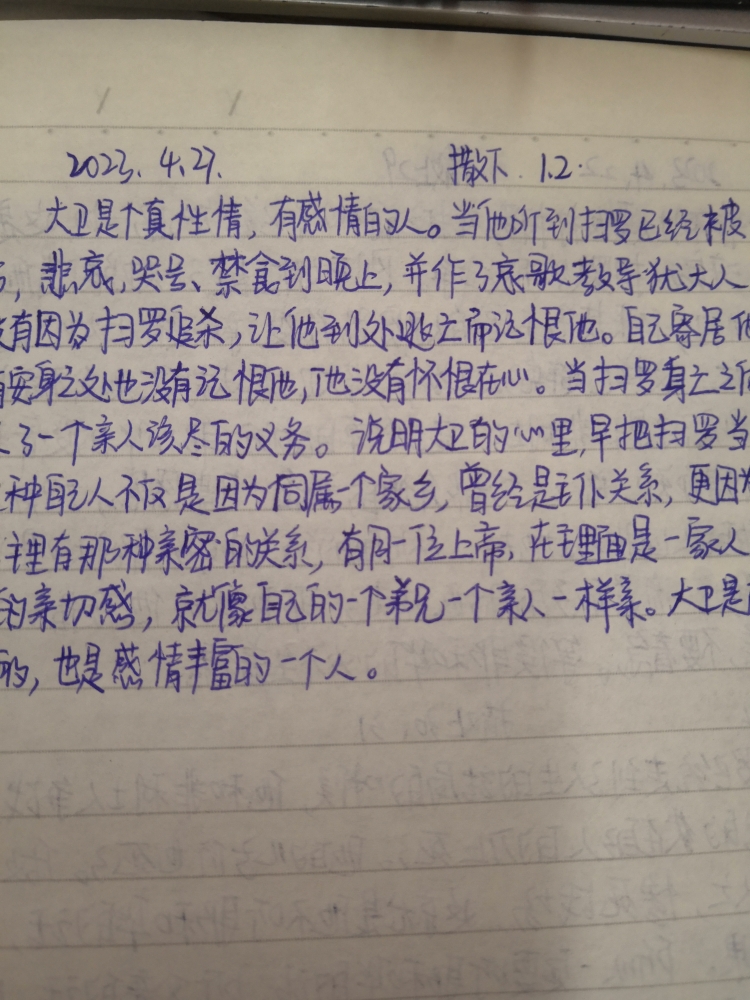 2023. 4.27. 撒下. 1.2.
大卫是个真性情,有感情的人。当他听到扫罗已经被
悲哀,哭号、禁食到晚上,并作了哀歌教导犹大人
有因为扫罗追杀,让他到处逃亡而记恨他。自己寄居
安身之处也没有记恨他,他没有怀恨在心。当扫罗身亡之后
了一个亲人该尽的义务。说明大卫的心里,早把扫罗当
种自己人不仅是因为同属一个家乡,曾经是主仆关系,更因为
主里有那种亲密的关系,有同一位上帝,在主里面是一家人
的亲切感,就像自己的一个弟兄一个亲人一样亲。大卫是
的,也是感情丰富的一个人。